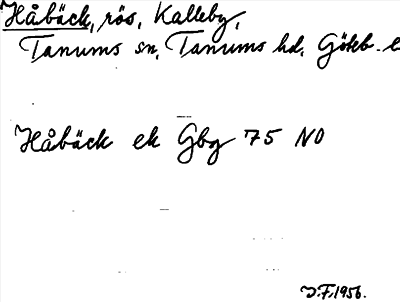 Håbäck, rös, Kalleby,
Tanums sn, Tanums hd, Göteb. l
Håbäck ek Gbg 75 NO
J.F. 1956.